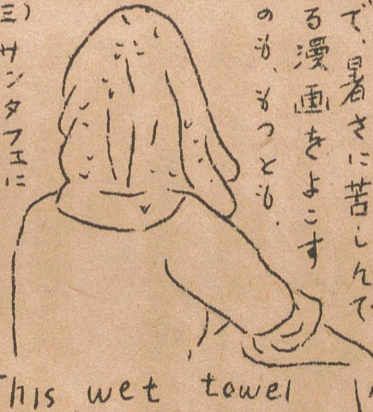 で、暑さに苦しんで
る漫画をよこす
のも、もつとも.
三) サンタフエに
This wet towel